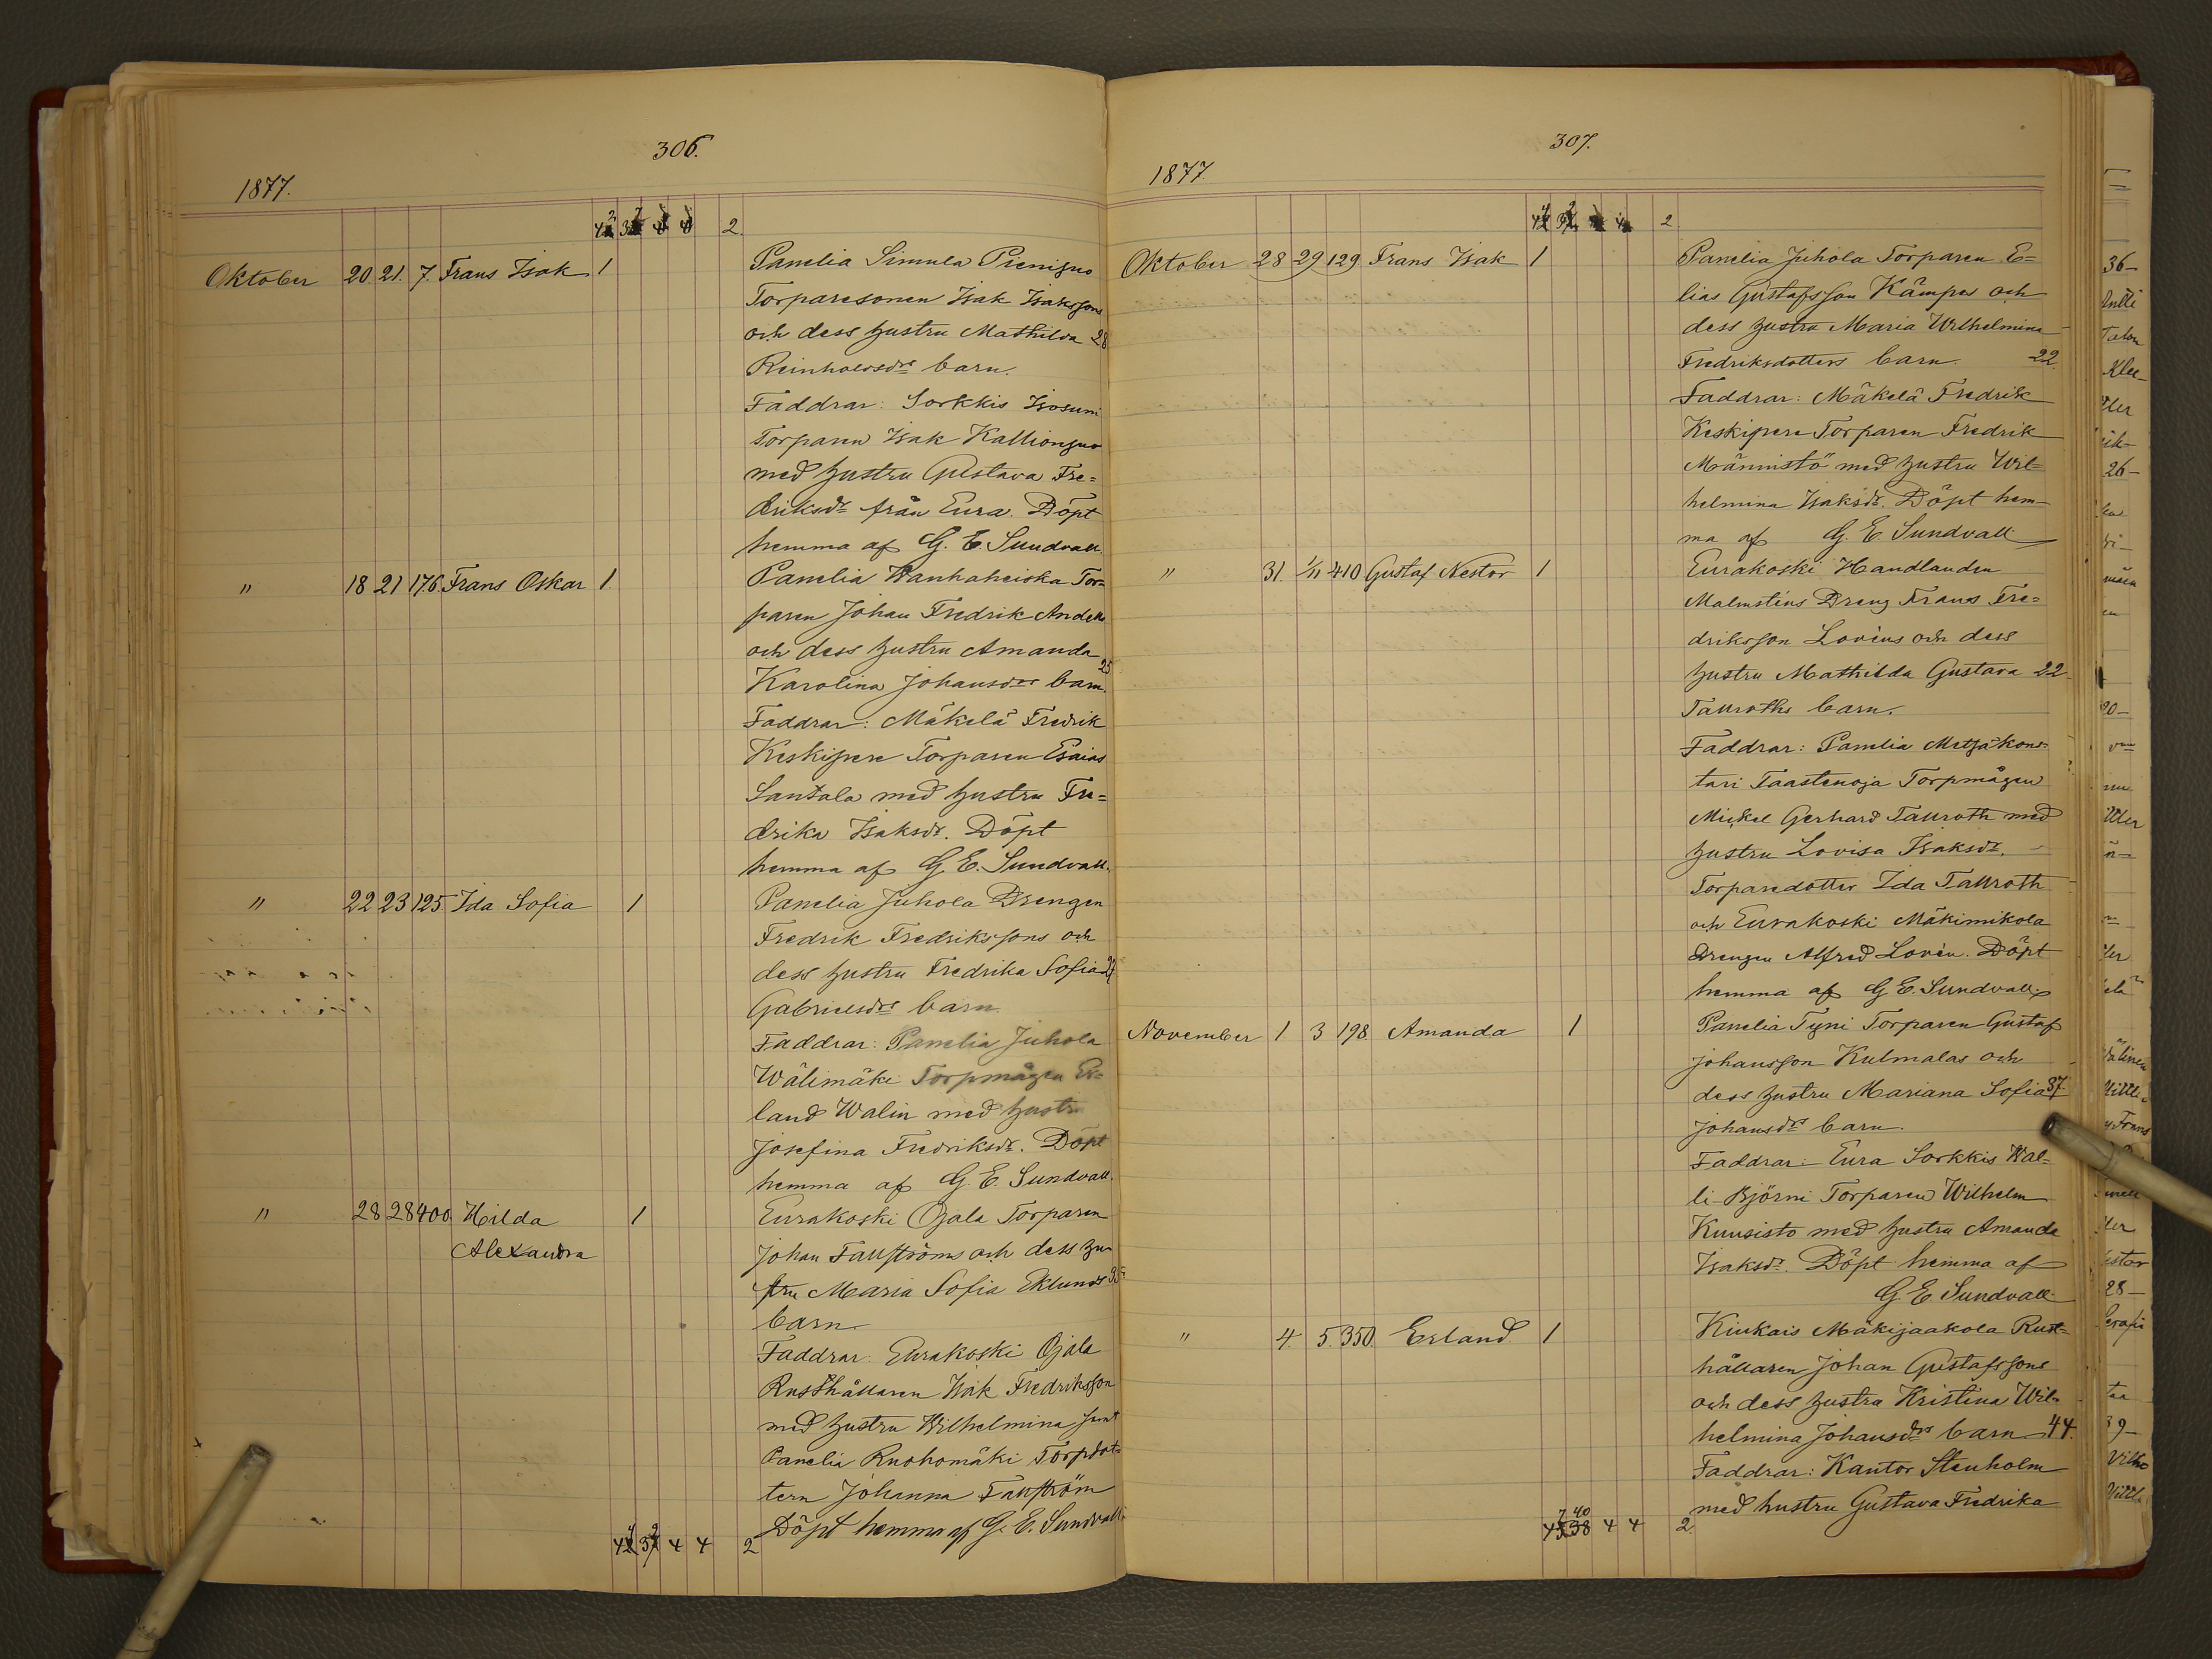 306.
1877.
2.
Oktober 20. 21. 7. Frans Isak 1
Panelia Simula Pienijuo
Torparesonen Isak Isakssons
och dess hustru Mathilda 28
Reinholdsdrs barn.
Faddrar: Sorkkis Isosuni
Torparen Isak Kallionjuo
med hustru Gustava Fre=
driksdr från Eura. Döpt
hemma af G. E. Sundvall.
" 18 21 176. Frans Oskar 1.
Panelia Wanhaheiska Tor=
paren Johan Fredrik
och dess hustru Amanda 25
Karolina Johansdrs barn.
Faddrar: Mäkelä Fredrik
Keskipere Torparen Esaias
Santala med hustru Fre=
drika Isaksdr. Döpt
hemma af G. E. Sundvall.
" 22 23 125. Ida Sofia 1
Panelia Juhola Drengen
Fredrik Fredrikssons och
dess hustru Fredrika Sofia
Gabrielsdrs barn.
Faddrar: Panelia Juhola
Wälimäki Torpmågen Er=
land Walin med hustru
Josefina Fredriksdr. Döpt
hemma af G. E. Sundvall.
" 28 28 400. Hilda 1
Alexandra
Eurakoski Ojala Torparen
Johan Fallströms och dess hu=
stru Maria Sofia Eklunds 35
barn.
Faddrar: Eurakoski Ojala
Rusthållaren Isak Fredriksson
med hustru Wilhelmina samt
Panelia Ruohomäki Torpdot=
tern Johanna Fallström
Döpt hemma af G. E. Sundvall.
4 4 2
307.
1877
2
Oktober 28 29 129. Frans Isak 1
Panelia Juhola Torparen E=
lias Gustafsson Kämpes och
dess hustru Maria Wilhelmina
Fredriksdotters barn. 22
Faddrar: Mäkelä Fredrik
Keskipere Torparen Fredrik
Männistö med hustru Wil=
helmina Isaksdr. Döpt hem=
ma af G. E. Sundvall
" 31. 1/11 410 Gustaf Nestor 1
Eurakoski Handlanden
Malmsténs Dreng Frans Fre=
driksson Lovéns och dess
hustru Mathilda Gustava 22
Tallroths barn.
Faddrar: Panelia Metsäkons=
tari Taastenoja Torpmågen
Mickel Gerhard Tallroth med
hustru Lovisa Isaksdr,
Torparedotter Ida Tallroth
och Eurakoski Mäkimikola
Drengen Alfred Lovén. Döpt
hemma af G. E. Sundvall.
November 1 3 198. Amanda 1
Panelia Tyni Torparen Gustaf
Johansson Kulmalas och
dess hustru Mariana Sofia 37.
Johansdrs barn.
Faddrar: Eura Sorkkis Wäl=
li-Björni Torparen Wilhelm
Kuusisto med hustru Amanda
Isaksdr. Döpt hemma af
G. E. Sundvall
" 4. 5. 350. Erland. 1
Kiukais Mäkijaakola Rust=
hållaren Johan Gustafssons
och dess hustru Kristina Wil=
helmina Johansdrs barn 44.
Faddrar: Kantor Stenholm
med hustru Gustava Fredrika
7 40
38 4 4 2.